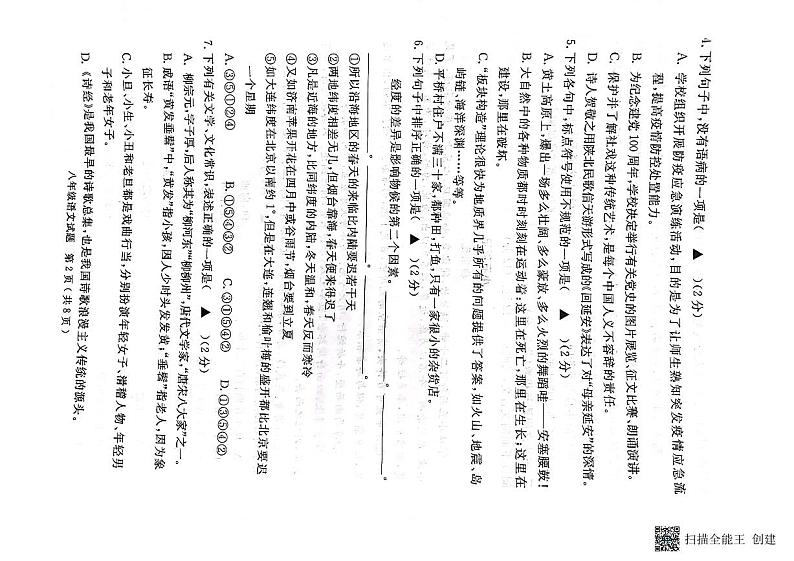 4. 下列句子中,没有语病的一项是( ▲ )(2分)
A. 学校组织开展防疫应急演练活动,目的是为了让师生熟知突发疫情应急流
程,提高疫情防控处置能力。
B. 为纪念建党100周年,学校决定举行有关党史的图片展览、征文比赛、朗诵演讲。
C. 保护并了解社戏这种传统艺术,是每个中国人义不容辞的责任。
D. 诗人贺敬之用陕北民歌信天游形式写成的《回延安》表达了对“母亲延安”的深情。
5. 下列各句中,标点符号使用不规范的一项是( ▲ )(2分)
A. 黄土高原上,爆出一场多么壮阔、多么豪放、多么火烈的舞蹈哇——安塞腰鼓!
B. 大自然中的各种物质都时时刻刻在运动着;这里在死亡,那里在生长;这里在
建设,那里在破坏。
C. “板块构造”理论很快为地质界几乎所有的问题提供了答案,如火山、地震、岛
屿链、海洋深渊……等等。
D. 平桥村住户不满三十家,都种田,打鱼,只有一家很小的杂货店。
6. 下列句子中排序正确的一项是( ▲ )(2分)
经度的差异是影响物候的第二个因素。
①所以沿海地区的春天的来临比内陆要迟若干天
②两地纬度相差无几,但烟台靠海,春天便来得迟了
③凡是近海的地方,比同纬度的内陆,冬天温和,春天反而寒冷
④又如济南苹果开花在四月中或谷雨节,烟台要到立夏
⑤如大连纬度在北京以南约1°,但是在大连,连翘和榆叶梅的盛开都比北京要迟
一个星期
A. ③⑤①②④ B. ①⑤④③② C. ③①⑤④② D. ①③⑤④②
7. 下列有关文学、文化常识,表述正确的一项是( ▲ )(2分)
A. 柳宗元,字子厚,后人称其为“柳河东”“柳柳州”,唐代文学家,“唐宋八大家”之一。
B. 成语“黄发垂髫”中,“黄发”指小孩,因人少时头发发黄;“垂髫”指老人,因为象
征长寿。
C. 小旦、小生、小丑和老旦都是戏曲行当,分别扮演年轻女子、滑稽人物、年轻男
子和老年女子。
D. 《诗经》是我国最早的诗歌总集,也是我国诗歌浪漫主义传统的源头。
八年级语文试题 第2页(共8页)
扫描全能王 创建